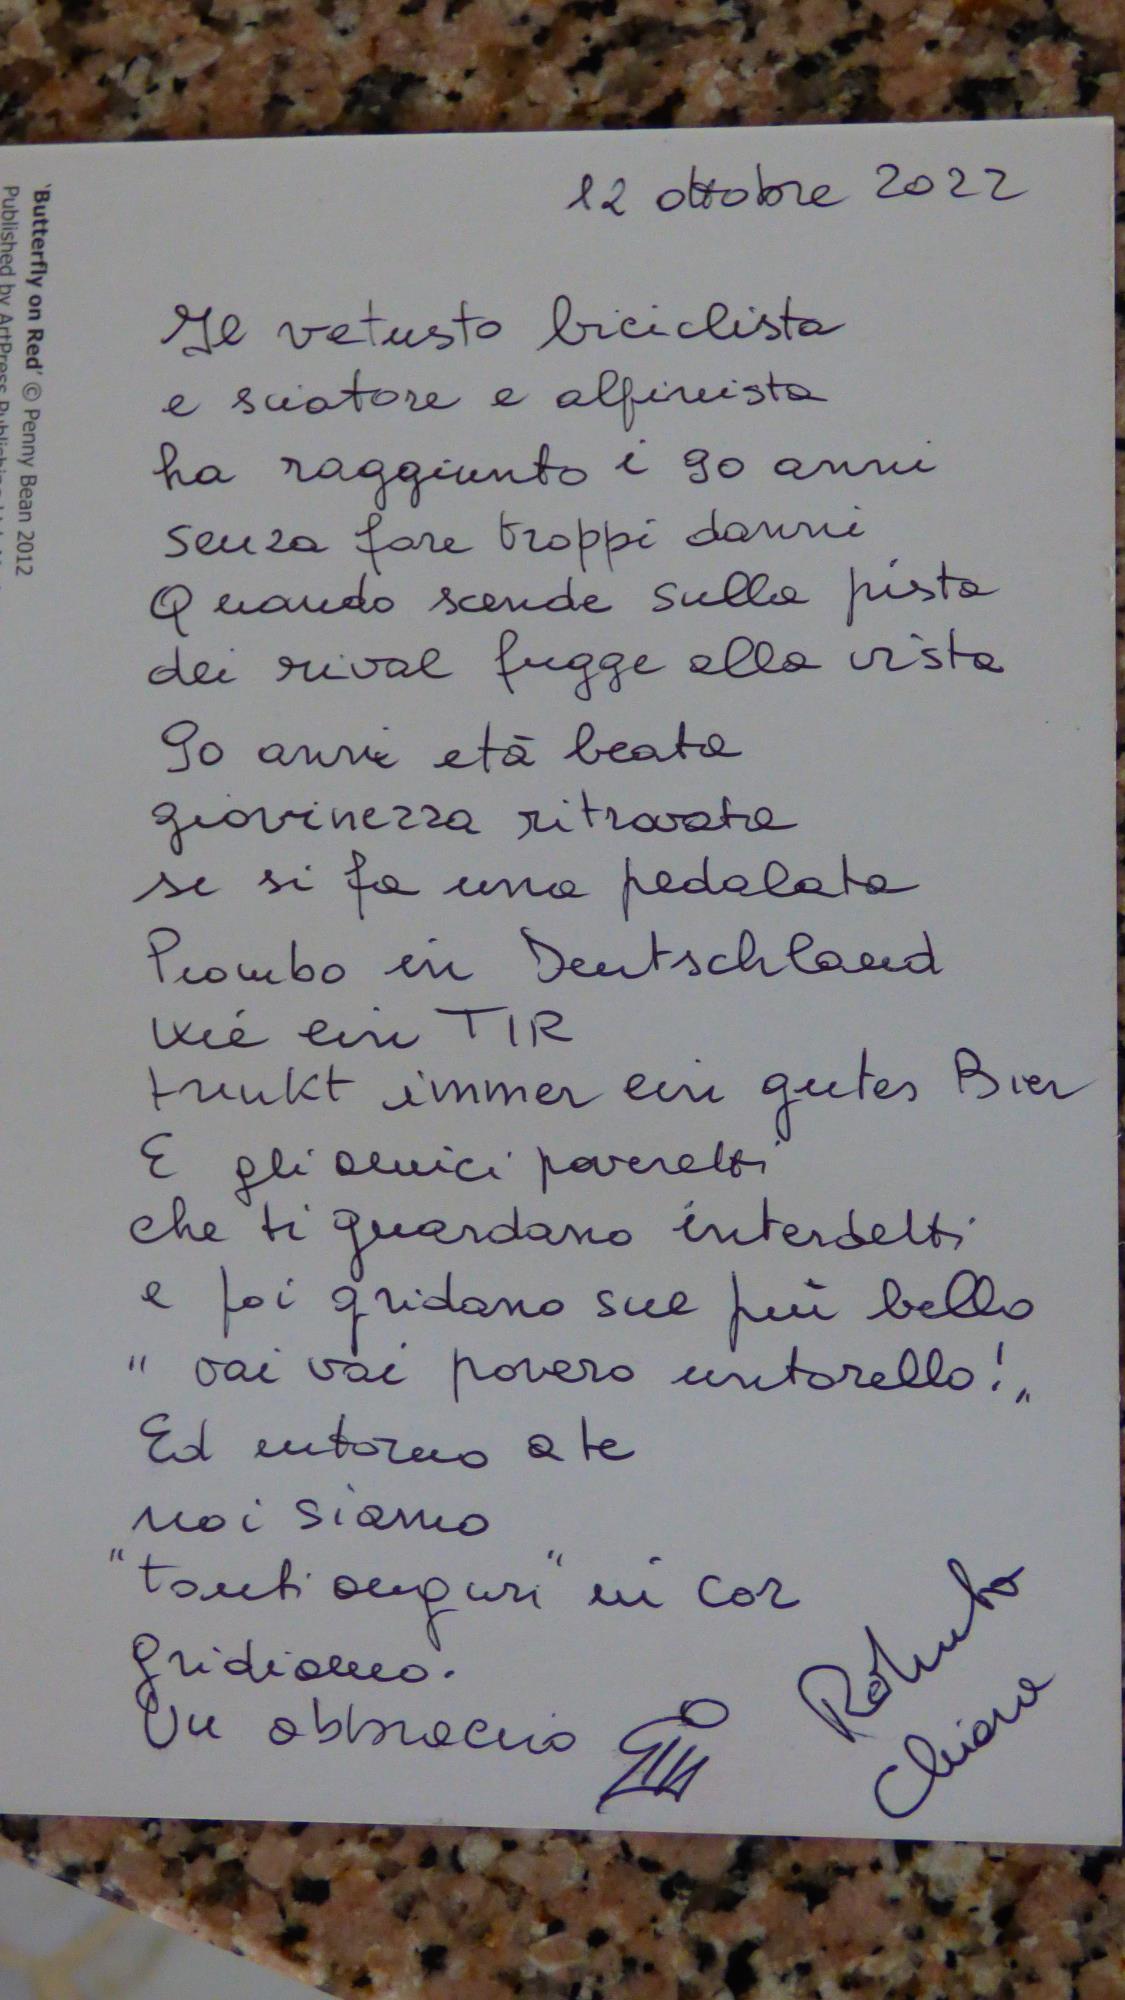 12 ottobre 2022
Il vetusto biciclista
e sciatore e alpinista
ha raggiunto i 90 anni
senza fare troppi danni
Quando scende sulla pista
dei rival fugge alla vista
90 anni età beata
giovinezza ritrovata
se si fa una pedalata
Piombo in Deutschland
wie ein TIR
trinkt immer ein gutes Bier
E gli amici poveretti
che ti guardano interdetti
e poi gridano sul più bello
" vai vai povero untorello! "
Ed intorno a te
noi siamo
"tanti auguri" in cor
gridiamo.
Un abbraccio
Chiara
'Butterfly on Red' © Penny Bean 2012
Published by ArtPress